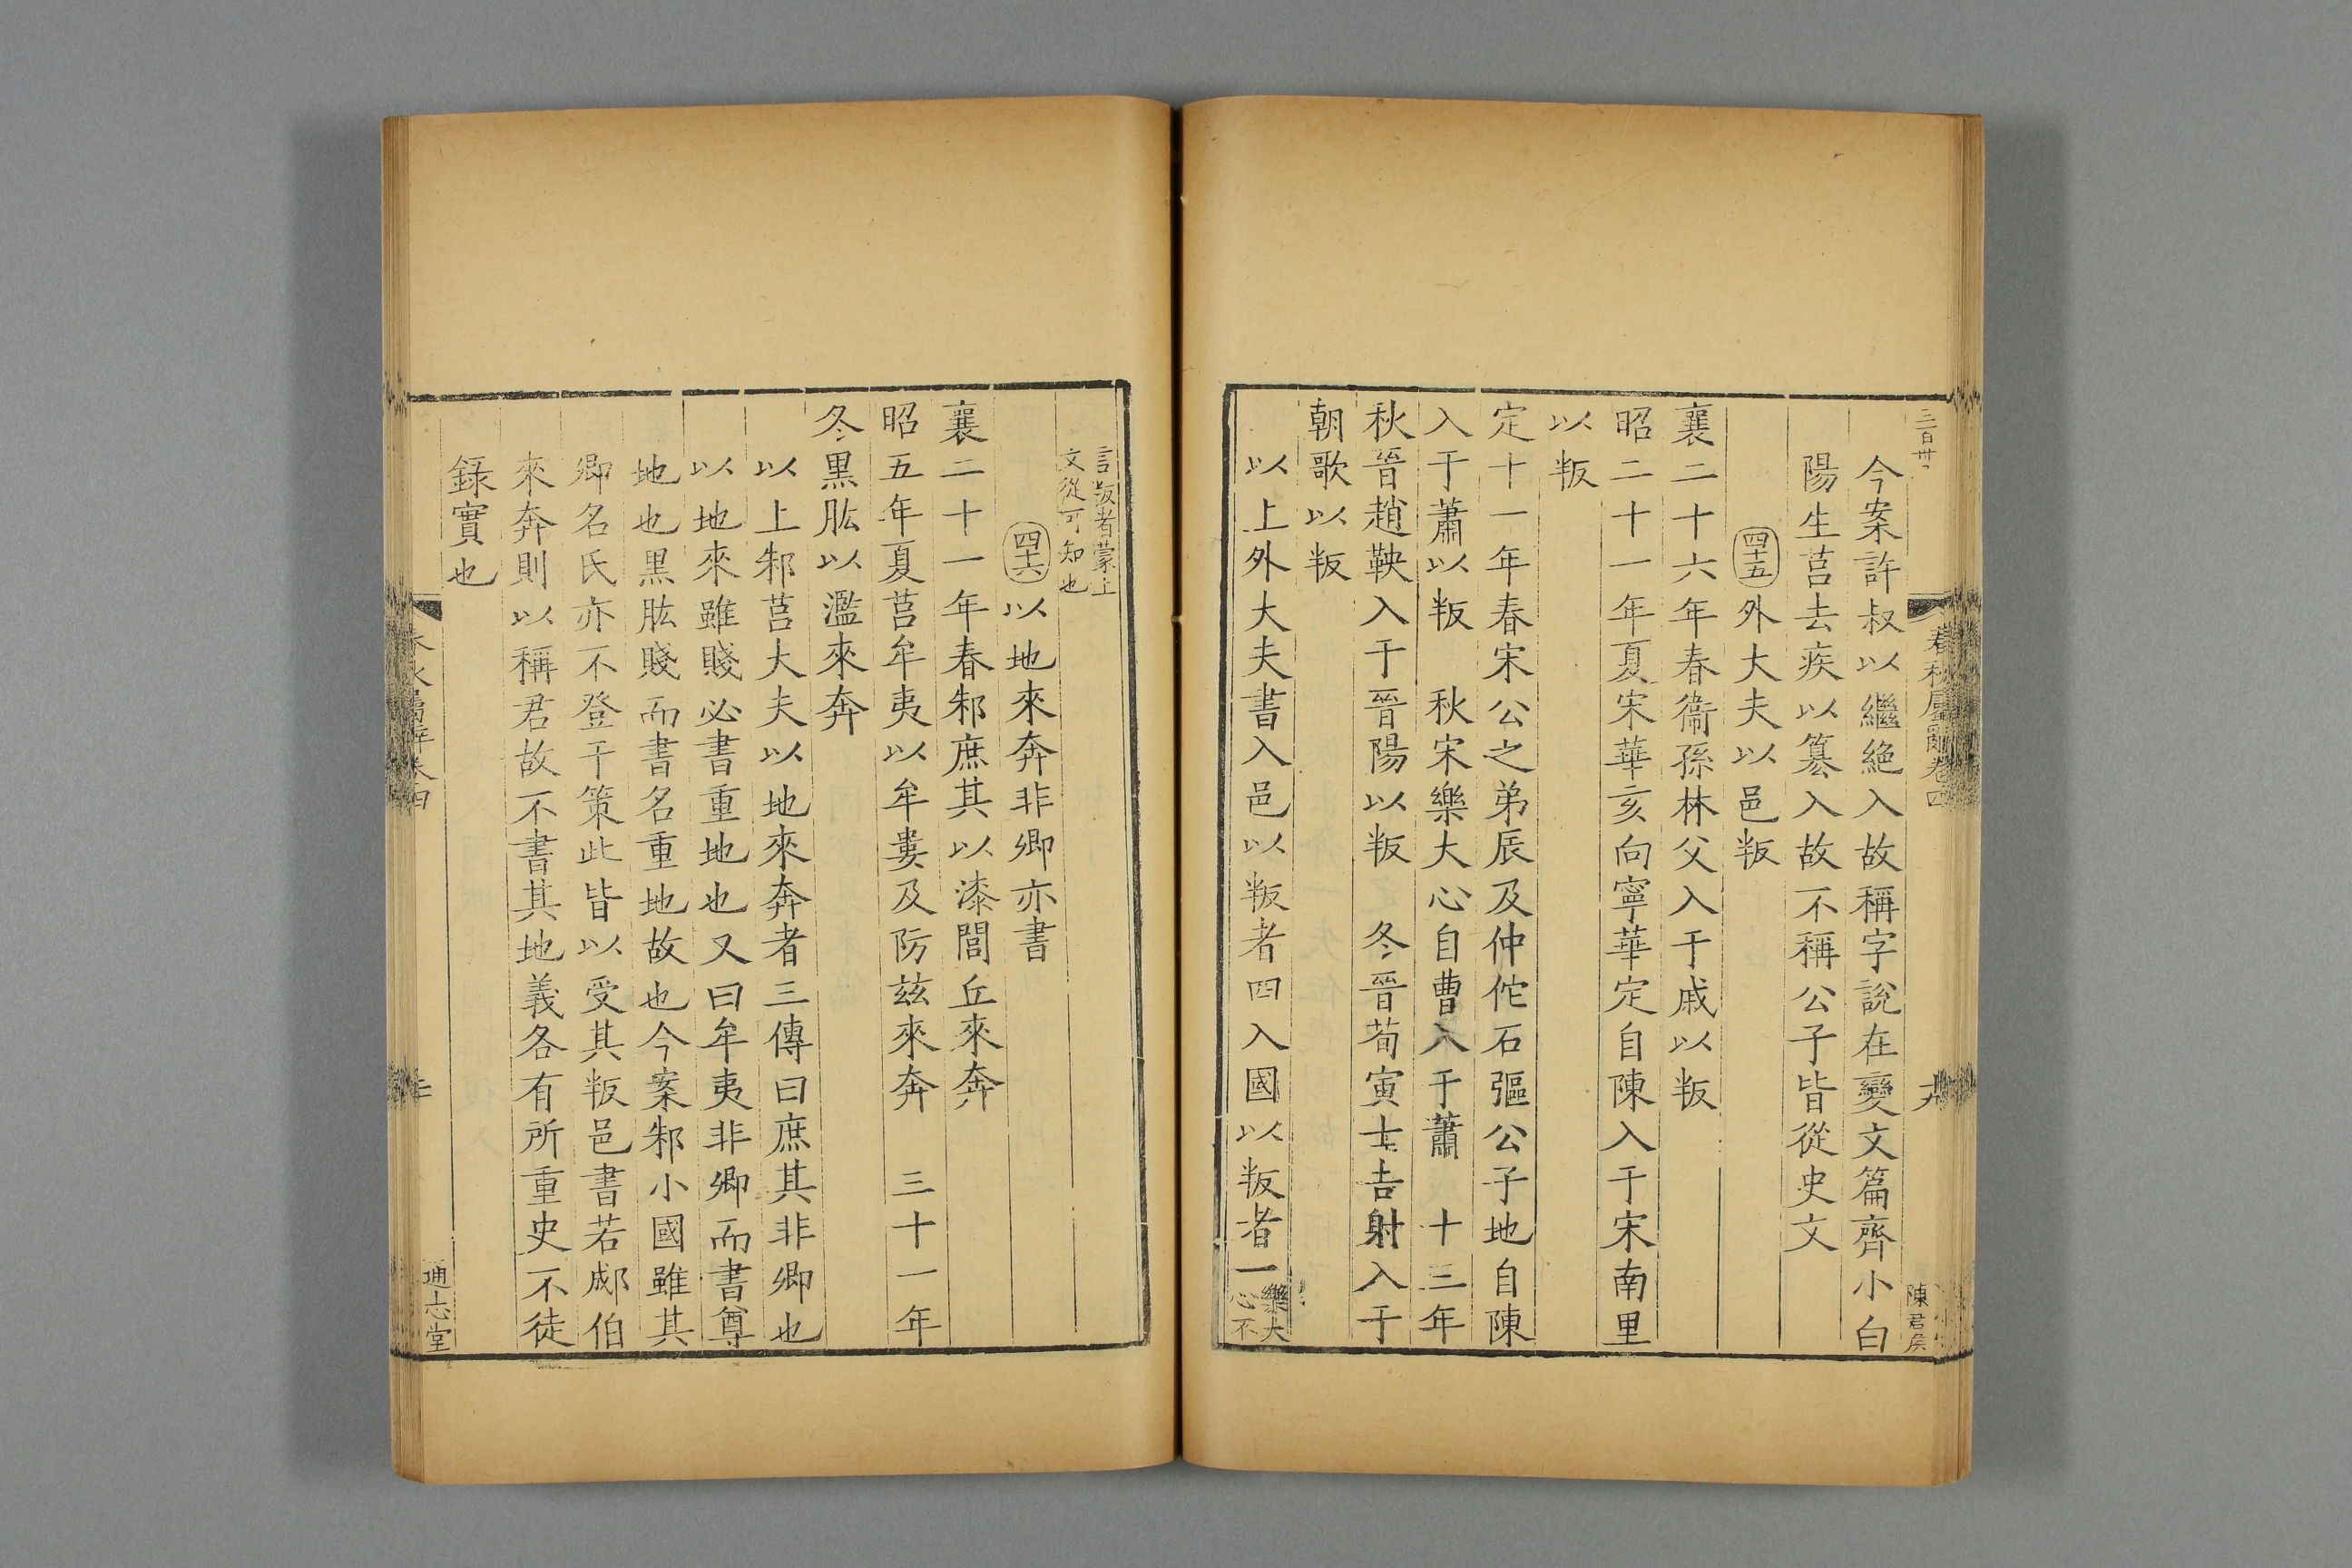 今案許叔以繼絶入故稱字說在變文篇齊小白
陽生莒去疾以簒入故不稱公子皆從史文
四十五外大夫以邑叛
襄二十六年春衞孫林父入于戚以叛
昭二十一年夏宋華亥向寧華定自陳入于宋南里
以叛
定十一年春宋公之弟辰及仲佗石彄公子地自陳
入于蕭以叛 秋宋樂大心自曹入于蕭 十三年
秋晉趙鞅入于晉陽以叛 冬晉荀寅士吉射入于
朝歌以叛
以上外大夫書入邑以叛者四入國以叛者一樂大
心不
言叛者蒙上
文從可知也
四十六以地來奔非卿亦書
襄二十一年春邾庶其以漆閭丘來奔
昭五年夏莒牟夷以牟婁及防茲來奔 三十一年
冬黑肱以濫來奔
以上邾莒大夫以地來奔者三傳曰庶其非卿也
以地來雖賤必書重地也又曰牟夷非卿而書尊
地也黑肱賤而書名重地故也今案邾小國雖其
卿名氏亦不登于策此皆以受其叛邑書若郕伯
來奔則以稱君故不書其地義各有所重史不徒
録實也
三百卅
春秋屬辭卷四
陳君矦
春秋屬辭卷四
通志堂